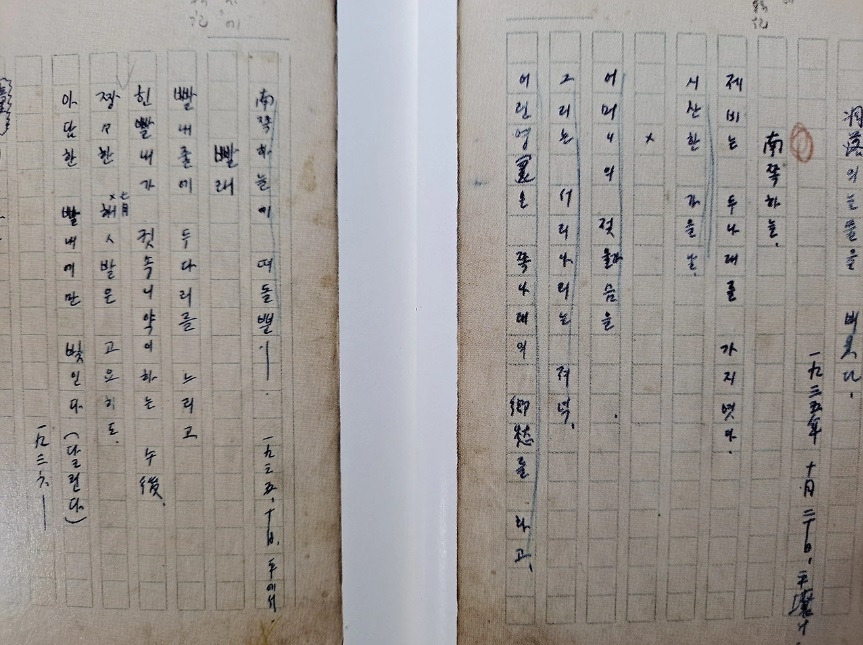 凋落의눈물을 비웃다.
一九三五年 十月 二十日、平壤서、
南쪽하늘、
제비는 두나래를 가지엿다.
시산한 가을날、
×
어머니의 젖가슴을
그리는 서리나리는 저녁、
어린영靈은 쪽나래의 鄕愁를 타고、
南쪽하늘에 떠돌뿐—. 一九三五、十月、平에서.
빨래
빨내줄에 두다리를 느리고
힌빨내가 귓속니약이하는 午後、
쨍々한 七月해ㅅ발은 고요히도
아담한 빨내에만 빛인다. (달린다)
一九三六、—